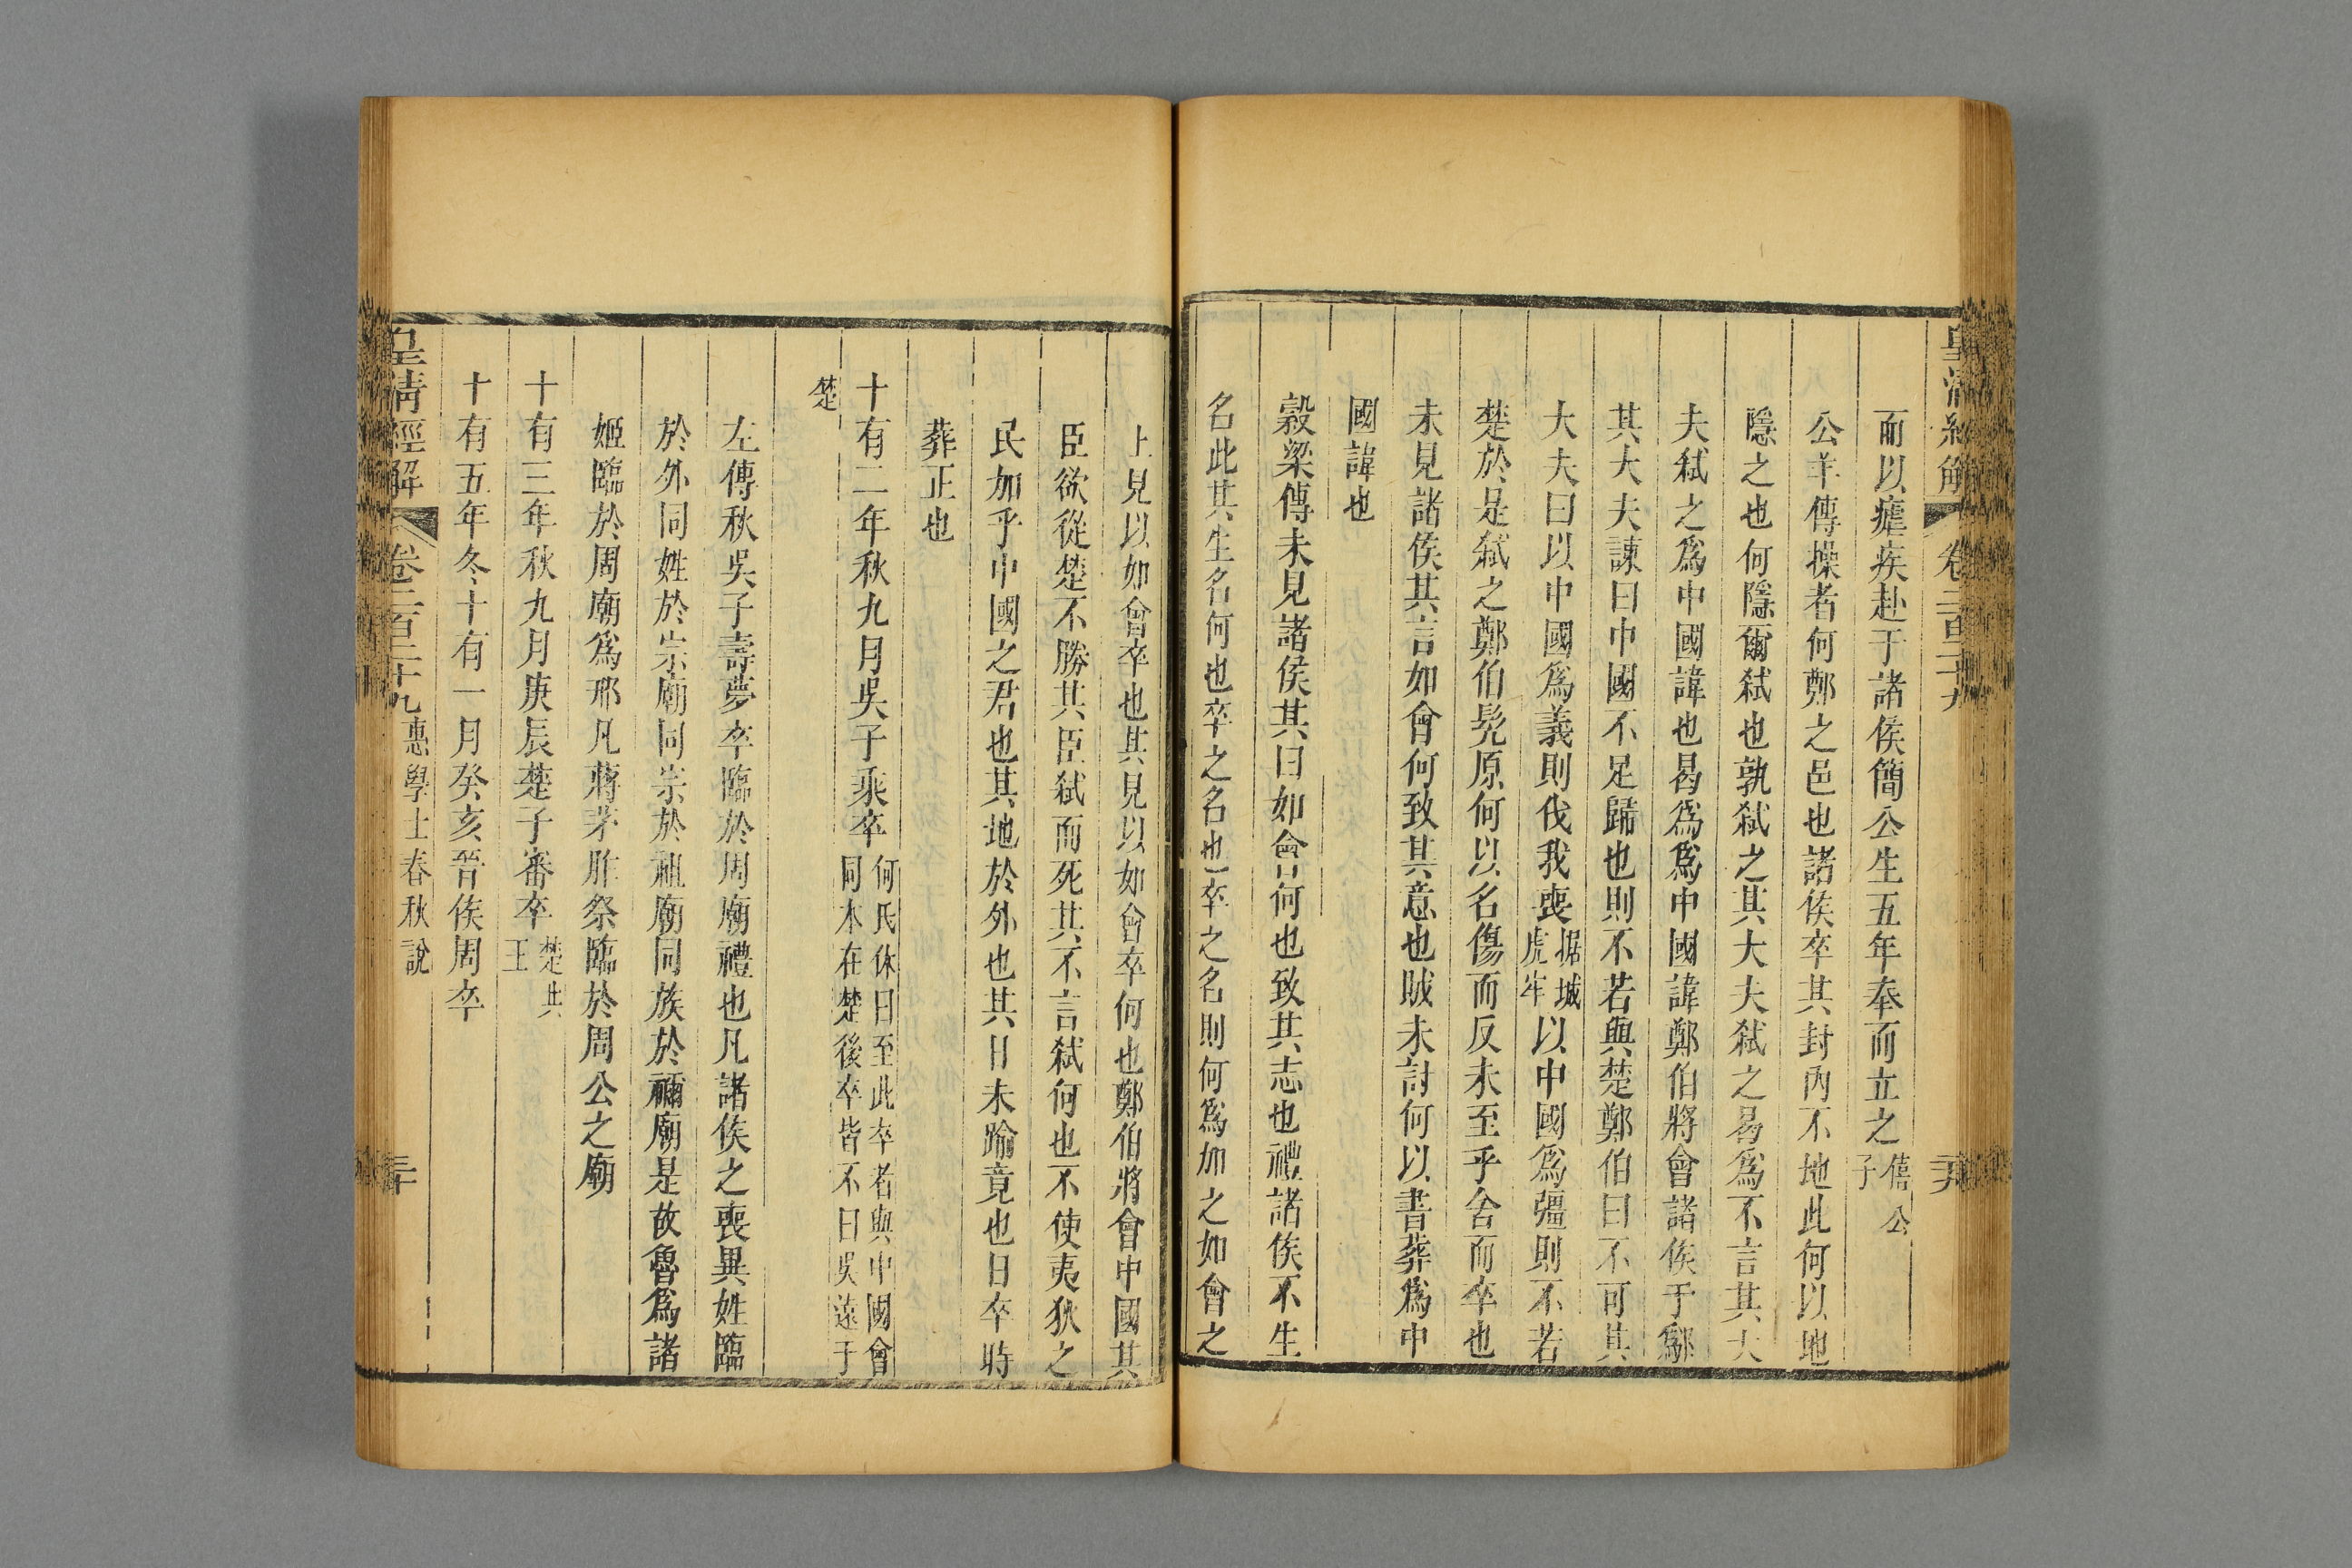 皇清經解 卷二百三十九
而以瘧疾赴于諸侯簡公生五年奉而立之僖公子
公羊傳操者何鄭之邑也諸侯卒其封內不地此何以地
隱之也何隱爾弒也孰弒之其大夫弒之曷爲不言其大
夫弒之爲中國諱也曷爲爲中國諱鄭伯將會諸侯于鄬
其大夫諫曰中國不足歸也則不若與楚鄭伯曰不可其
大夫曰以中國爲義則伐我喪据城虎牢以中國爲彊則不若
楚於是弒之鄭伯髡原何以名傷而反未至乎舍而卒也
未見諸侯其言如會何致其意也賊未討何以書葬爲中
國諱也
穀梁傳未見諸侯其曰如會何也致其志也禮諸侯不生
名此其生名何也卒之名也卒之名則何爲加之如會之
上見以如會卒也其見以如會卒何也鄭伯將會中國其
臣欲從楚不勝其臣弒而死其不言弒何也不使夷狄之
民加乎中國之君也其地於外也其日未踰竟也日卒時
葬正也
十有二年秋九月吳子乘卒何氏休曰至此卒者與中國會同本在楚後卒皆不日吳遠于
楚
左傳秋吳子壽夢卒臨於周廟禮也凡諸侯之喪異姓臨
於外同姓於宗廟同宗於祖廟同族於禰廟是故魯爲諸
姬臨於周廟爲邢凡蔣茅胙祭臨於周公之廟
十有三年秋九月庚辰楚子審卒楚共王
十有五年冬十有一月癸亥晉侯周卒
皇清經解 卷二百三十九 惠學士春秋說 三十